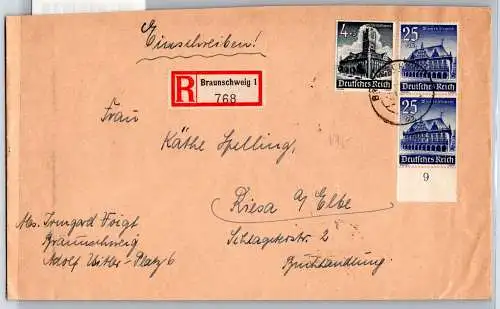 Einschreiben!
4+3
Deutsches Reich
25
Deutsches Reich
25
Deutsches Reich
9
R
Braunschweig 1
768
Frau
Käthe Spelling,
Riesa a/ Elbe
Schlageterstr. 2
Buchhandlung
Abs. Irmgard Voigt
Braunschweig
Adolf Hitler-Platz 6